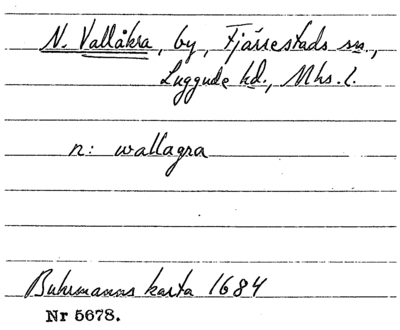 N. Vallåkra, by, Fjärrestads sn,
Luggude hd., Mhs. l.
n: wallagra
Buhrmanns karta 1684
Nr 5678.